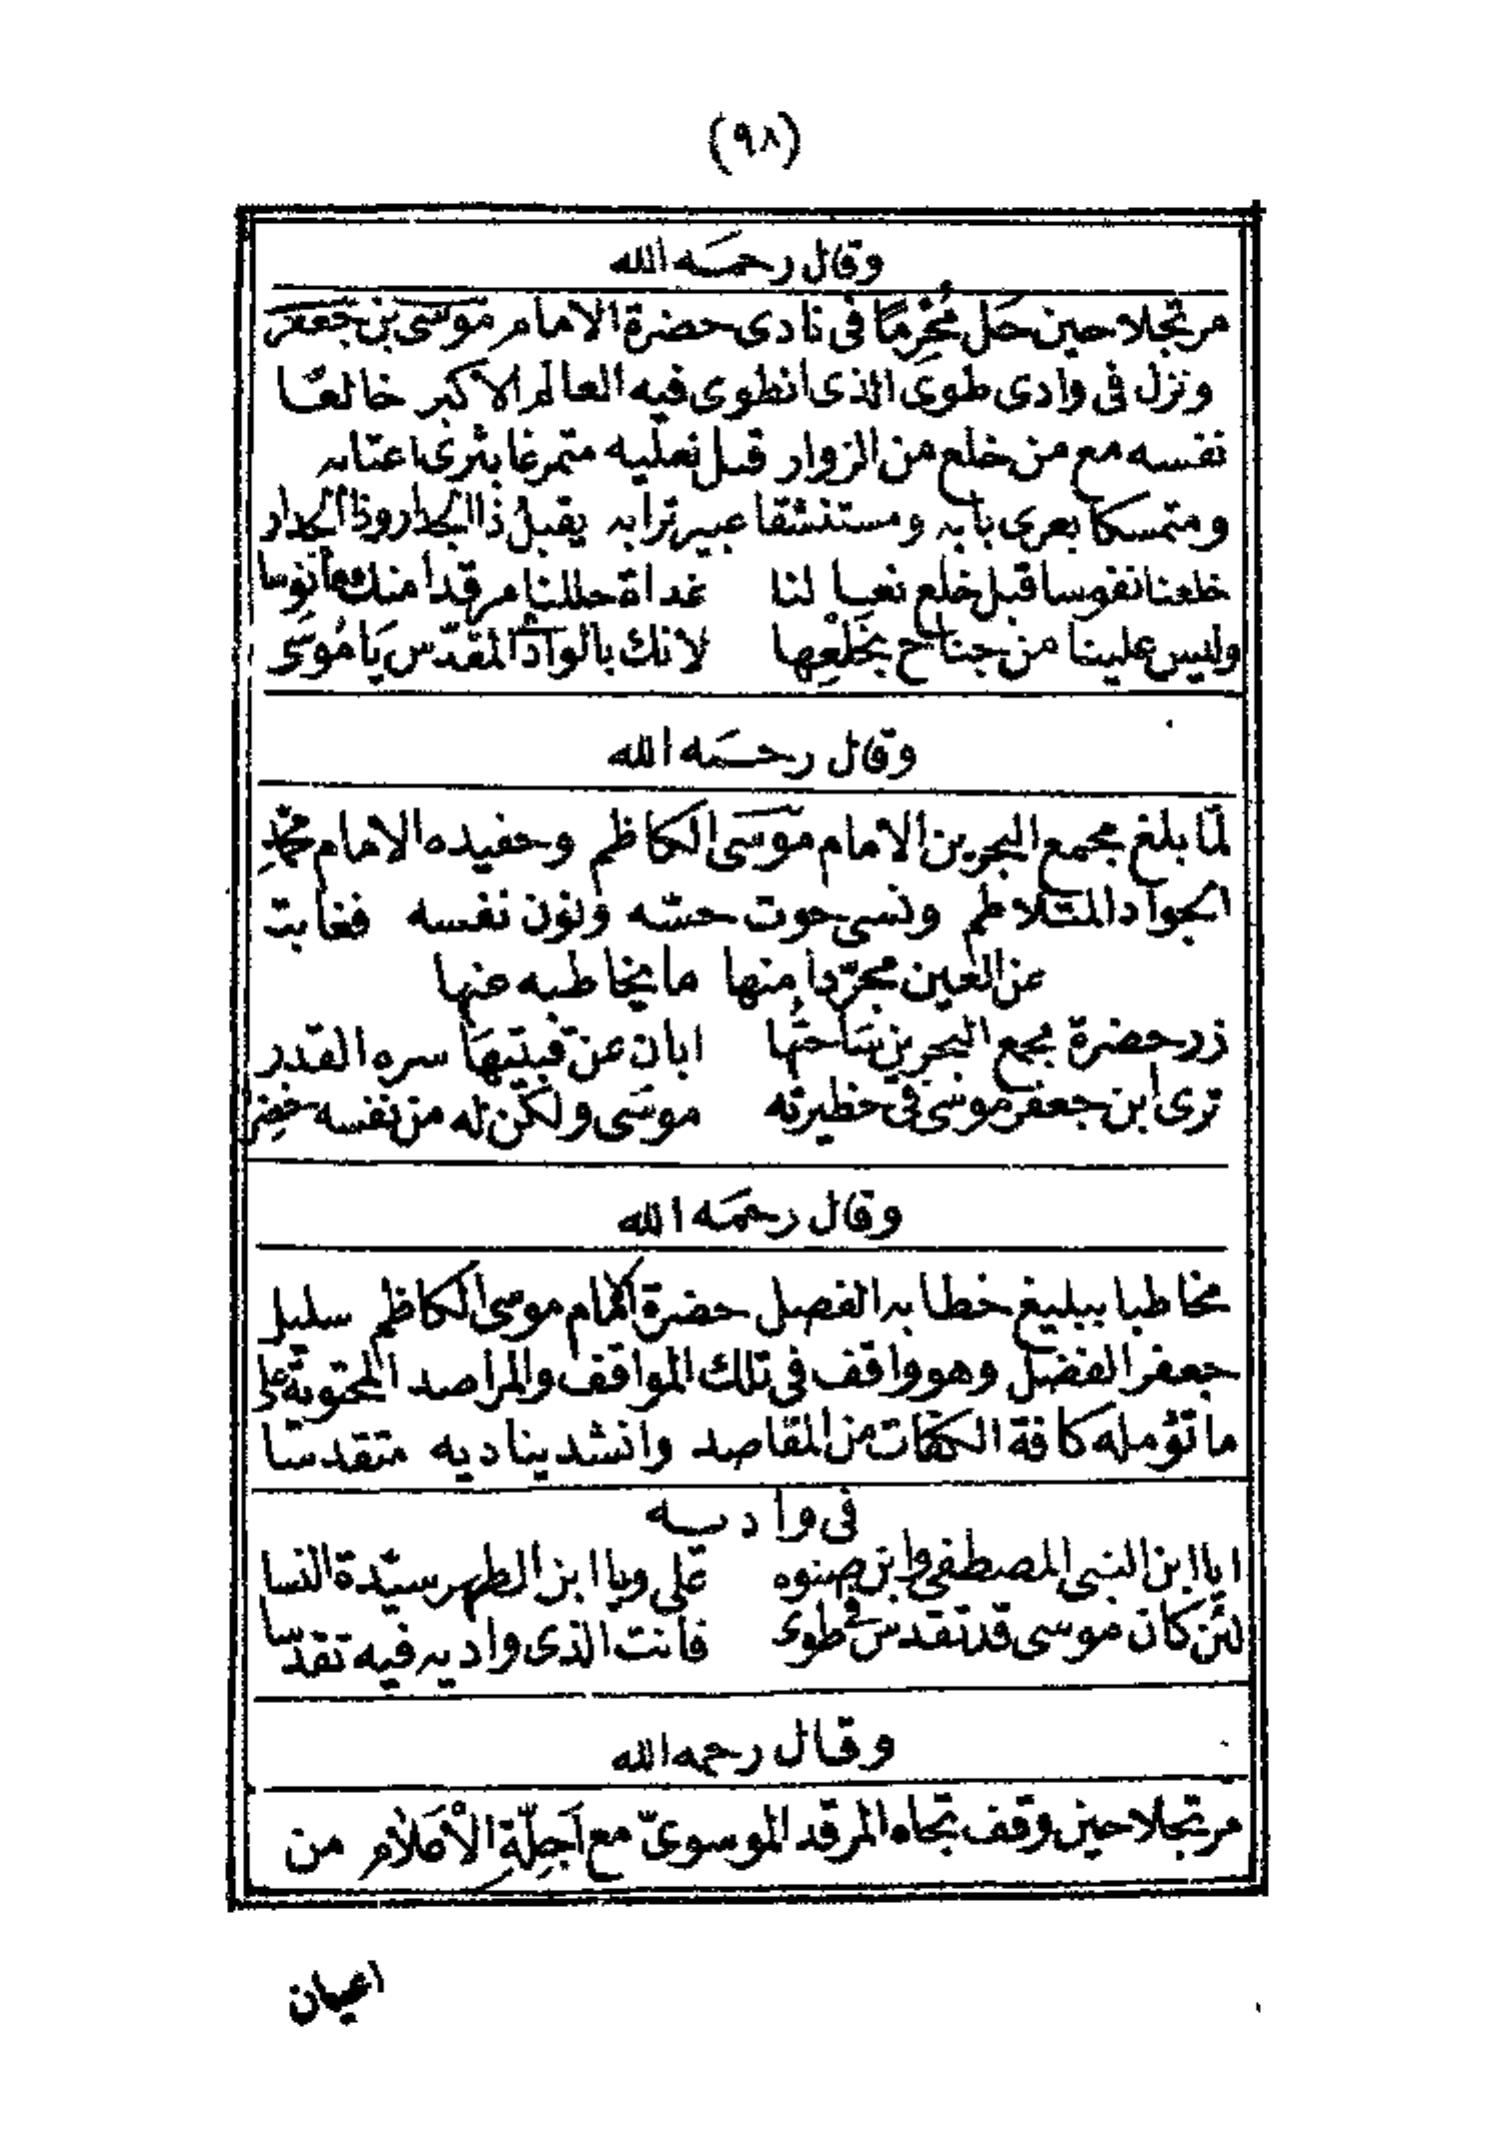 (٩٨)
وقال رحمه الله
مرتجلا حين حَل مُحْرِمًا فى نادى حضرة الامام موسى بن جعفر
ونزل فى وادى طوى الذى انطوى فيه العالم الاكبر خالعًا
نفسه مع من خلع من الزوار قبل نعليه متمرغا بثرى اعتابه
ومتمسكا بعرى بابه ومستنشقا عبير ترابه يقبل ذا الجدار وذا الجدار
خلعنا نفوسا قبل خلع نعالنا غداة حللنا مرقدا منك مأنوسا
وليس علينا من جناح بخَلْعِها لانك بالواد المقدّس يَا مُوسَى
وقال رحمه الله
لمّا بلغ مجمع البحرين الامام موسَى الكاظم وحفيده الامام محمّدِ
الجواد المتلاطم ونسى حوت حسّه ونون نفسه فغابت
عن العين مجرّدا منها ما يخاطبه عنها
زر حضرة مجمع البحرين سَاحتُها ابان عن قبتيهَا سره القدر
ترى ابن جعفر موسَى فى حظيرته موسَى ولكن له من نفسه خضِر
وقال رحمَه الله
مخاطبا ببليغ خطابه الفصل حضرة الامام موسى الكاظم سليل
جعفر الفضل وهو واقف فى تلك المواقف والمراصد المحتوية على
ما تؤمله كافة من المقاصد وانشد بناديه متقدسّا
فى واديه
ايا ابن النبى المصطفى وابن صنوه على ويا ابن الطهر سيّدة النسا
لئن كان موسى قد تقدس فى طوى فانت الذى واديه فيه تقدّسا
وقال رحمه الله
مرتجلا حين وقف تجاه المرقد الموسوىّ مع اَجِلّةِ الْاَعْلَام من
اعيان